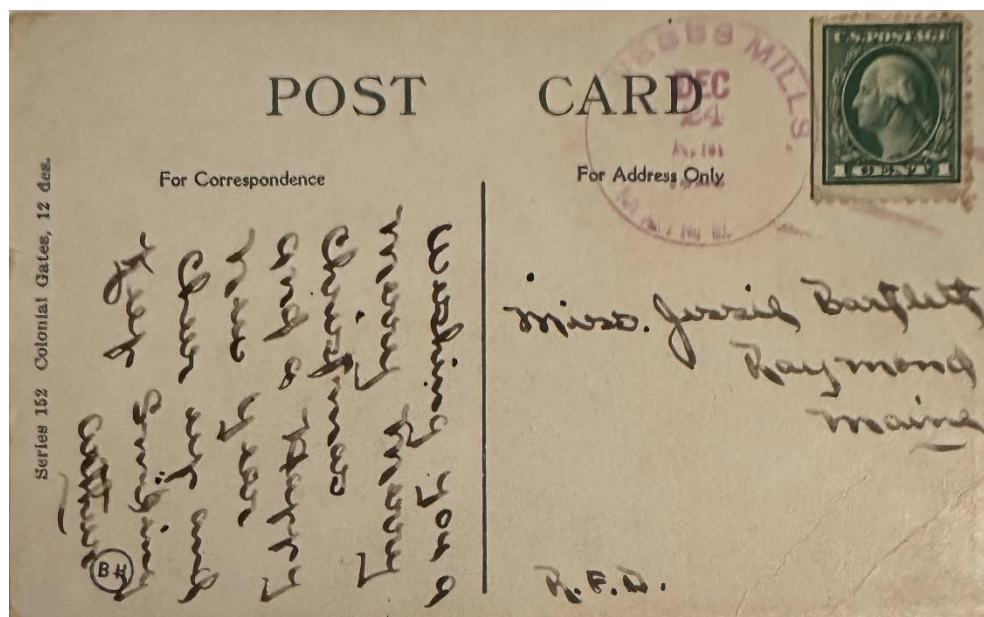 POST CARD
WEBBS MILLS,
DEC
24
A.M.
MAINE
U.S.POSTAGE
1 CENT 1
For Correspondence
For Address Only
Series 152 Colonial Gates, 12 des.
Wishing you a
merry merry
Christmas
and a Happy
New Year
Cheer up and
Keep Smiling
Arthur
BH
Miss. Jessie Bartlett
Raymond
Maine
R.F.D.